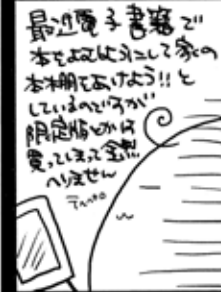 最近電子書籍で
本をよむようにして家の
本棚をあけよう!!と
しているのですが
限定版とかは
買ってしまって全然
へりません